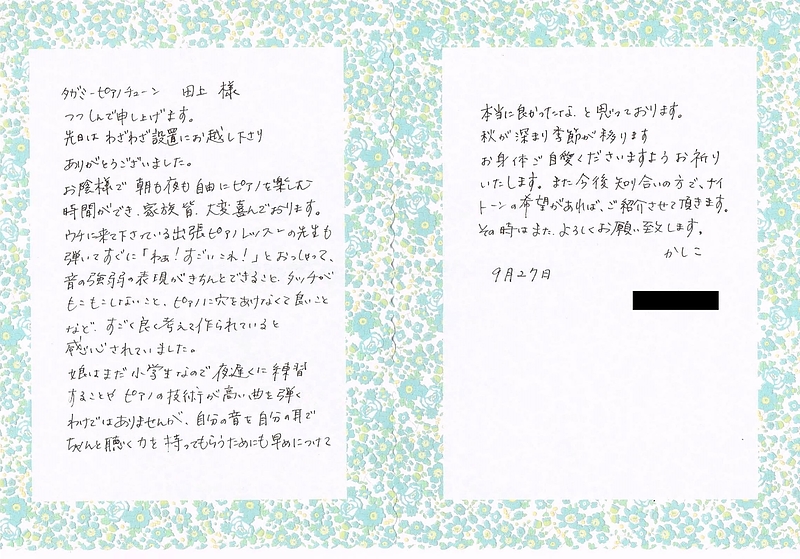 タガミーピアノチューン 田上 様
つつしんで申し上げます。
先日は わざわざ設置にお越し下さり
ありがとうございました。
お陰様で 朝も夜も自由にピアノを楽しむ
時間ができ、家族皆、大変喜んでおります。
ウチに来て下さっている出張ピアノレッスンの先生も
弾いてすぐに「わぁ!すごいこれ!」とおっしゃって、
音の強弱の表現がきちんとできること、タッチが
もこもこしないこと、ピアノに穴をあけなくて良いこと
など、すごく良く考えて作られていると
感心されていました。
娘はまだ小学生なので夜遅くに練習
することや ピアノの技術が高い曲を弾く
わけではありませんが、自分の音を自分の耳で
ちゃんと聴く力を持ってもらうためにも早めにつけて
本当に良かったな、と思っております。
秋が深まり季節が移ります
お身体ご自愛くださいますようお祈り
いたします。また今後知り合いの方で、ナイ
トーンの希望があれば、ご紹介させて頂きます。
その時はまた、よろしくお願い致します。
かしこ
9月27日